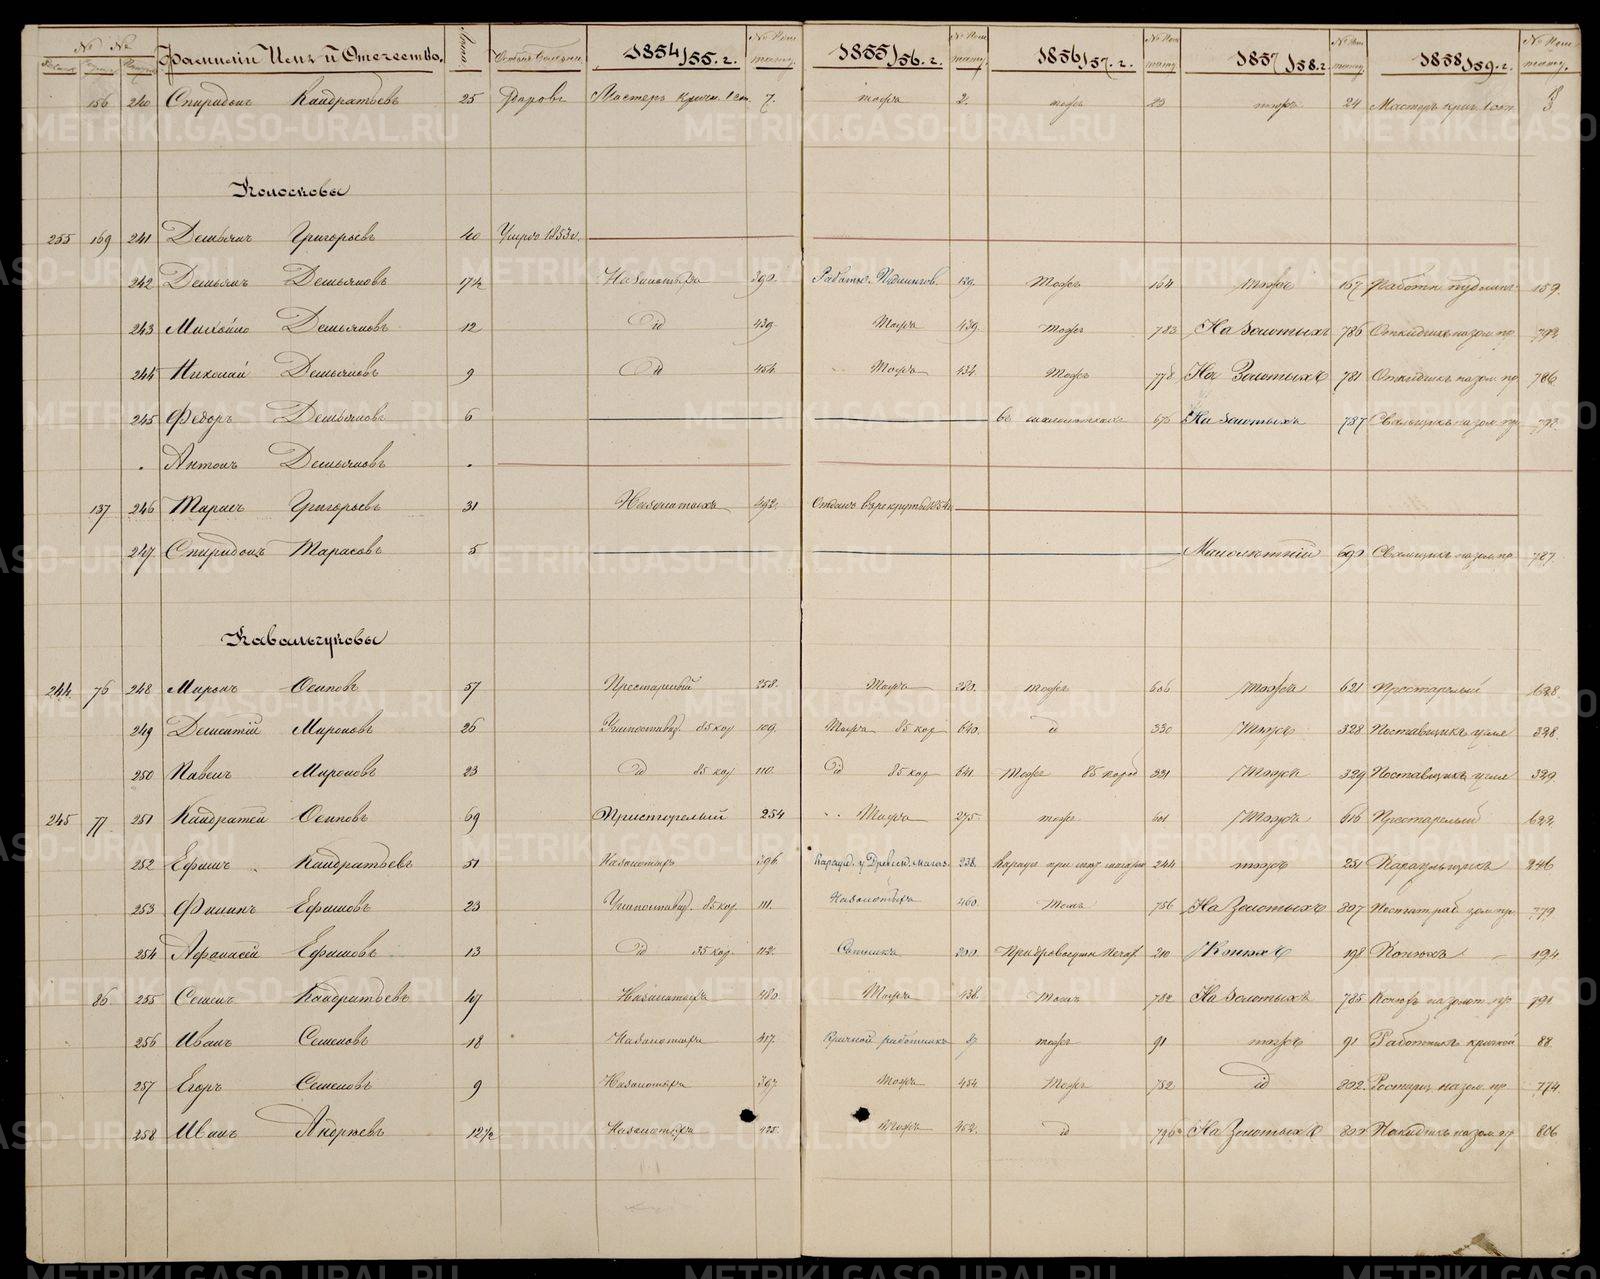 № № Фамилiи Имя и Отечество. Лѣта 1854/55. г. 1855/56. г. 1856/57. г. 1857/58. г. 1858/59. г.
156 240 Спиридонъ Кандратьевъ 25 Здоровъ Мастеръ кричн. 7. тожъ 2. тожъ 23 тожъ 24 Мастеръ крич.
Колосковы
255 169 241 Демьянъ Григорьевъ 40 Умеръ 1853 г.
242 Демьянъ Демьяновъ 17½ На золотыхъ 390. Работн. Пудлингов. 129. Тожъ 164 тожъ 157 Работн пудлинг. 159.
243 Михайло Демьяновъ 12 id 439. Тожъ 439. тожъ 783 На Золотыхъ 786 Откидчикъ на зол. пр. 792
244 Николай Демьяновъ 9 id 454. Тожъ 434. Тожъ 778 На Золотыхъ 781 Откидчикъ на зол. пр. 786
245 Федоръ Демьяновъ 6 въ малолеткахъ 675 На Золотыхъ 787 Свальщикъ на зол. пр. 792.
Антонъ Демьяновъ
137 246 Тарасъ Григорьевъ 31 На золотыхъ 492. Отданъ въ рекруты 1854 г.
247 Спиридонъ Тарасовъ 5 Малолѣтнiй 690 Свальщикъ на зол. пр. 787.
Кавальчуковы
244 76 248 Миронъ Осиповъ 57 Престарелый 258. Тожъ 280. тожъ 606 тожъ 621 Престарелый 628
249 Дементiй Мироновъ 26 Углепоставщ. 85 кор 109. Тожъ 85 кор 640. id 330 тожъ 328 Поставщикъ угля 328.
250 Павелъ Мироновъ 23 id 85 кор 110. id 85 кор 641. тожъ 85 кор 331 тожъ 329 Поставщикъ угля 329
245 77 251 Кандратей Осиповъ 69 Пристарелый 254 Тожъ 275. тожъ 601 тожъ 616 Престарелый 622.
252 Ефимъ Кандратьевъ 51 На золотыхъ 396. Караул. у Древесн. магаз. 238. 244 тожъ 251 Караульщикъ 246
253 Филипъ Ефимовъ 23 Углепоставщ. 85 кор. 111. На золотыхъ 460. Тожъ 756 На Золотыхъ 807 779
254 Афанасей Ефимовъ 13 id 35 кор. 112. 200. 210 Конюхъ 198 Конюхъ 194
86 255 Семенъ Кандратьевъ 47 На золотыхъ 480. Тожъ 438. тожъ 782 На Золотыхъ 785 791
256 Иванъ Семеновъ 18 На золотыхъ 417. Кричной работникъ 87. тожъ 91 тожъ 91 Работникъ кричной 88.
257 Егоръ Семеновъ 9 На золотыхъ 397. Тожъ 454 Тожъ 752 id 802. 774.
258 Иванъ Андреевъ 12½ На золотыхъ 425. Тожъ 452. id 796 На Золотыхъ 806
METRIKI.GASO-URAL.RU